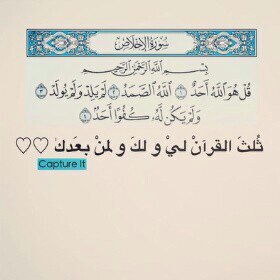 سُورَةُ الإِخْلَاصِ
بِسْمِ اللَّهِ الرَّحْمَٰنِ الرَّحِيمِ
قُلْ هُوَ اللَّهُ أَحَدٌ ١ اللَّهُ الصَّمَدُ ٢ لَمْ يَلِدْ وَلَمْ يُولَدْ ٣
وَلَمْ يَكُن لَّهُ كُفُوًا أَحَدٌ ٤
ثُلثَ القرآنْ ليْ و لكَ و لمنْ بعَدكَ ♡♡
Capture It